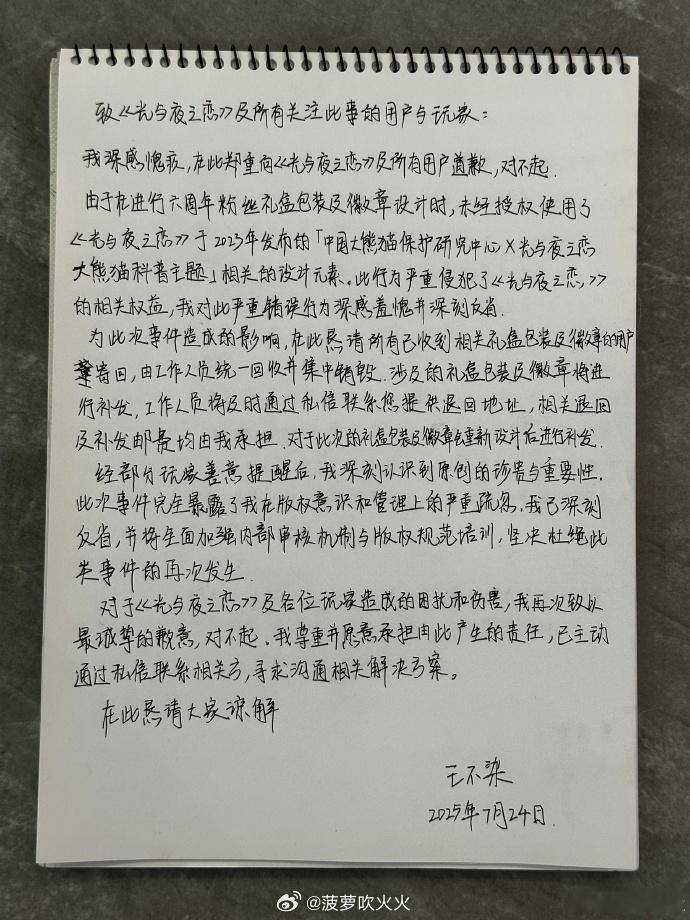 致《光与夜之恋》及所有关注此事的用户与玩家：
我深感愧疚，在此郑重向《光与夜之恋》及所有用户道歉，对不起.
由于在进行六周年粉丝礼盒包装及徽章设计时，未经授权使用了
《光与夜之恋》于2023年发布的「中国大熊猫保护研究中心X光与夜之恋
大熊猫科普主题」相关的设计元素。此行为严重侵犯了《光与夜之恋》
的相关权益，我对此严重错误行为深感羞愧并深刻反省.
为此次事件造成的影响，在此恳请所有已收到相关礼盒包装及徽章的用户
寄回，由工作人员统一回收并集中销毁.涉及的礼盒包装及徽章将进
行补发，工作人员将及时通过私信联系您提供退回地址，相关退回
及补发邮费均由我承担.对于此次的礼盒包装及徽章会重新设计后进行补发.
经部分玩家善意提醒后，我深刻认识到原创的珍贵与重要性.
此次事件完全暴露了我在版权意识和管理上的严重疏忽.我已深刻
反省，并将全面加强内部审核机制与版权规范培训，坚决杜绝此
类事件的再次发生.
对于《光与夜之恋》及各位玩家造成的困扰和伤害，我再次致以
最诚尊的歉意，对不起.我尊重并愿意承担由此产生的责任，已主动
通过私信联系相关方，寻求沟通相关解决方案。
在此恳请大家谅解
王不染
2025年7月24日.
@菠萝吹火火